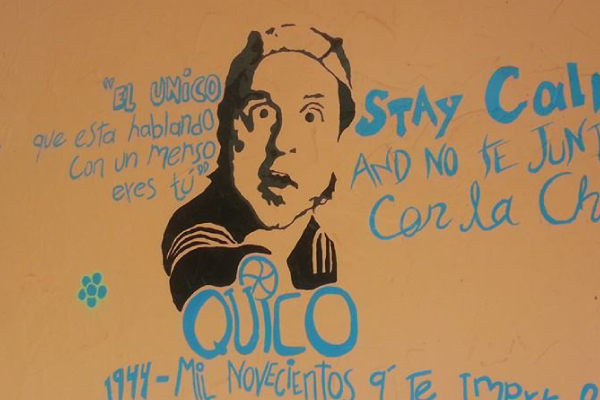 "EL UNICO
que esta hablando
Con un menso
eres tú"
STAY Cal
AND NO TE JUNT
Con la Ch
QUICO
1944 - MIL NOVECIENTOS q' Te Importa